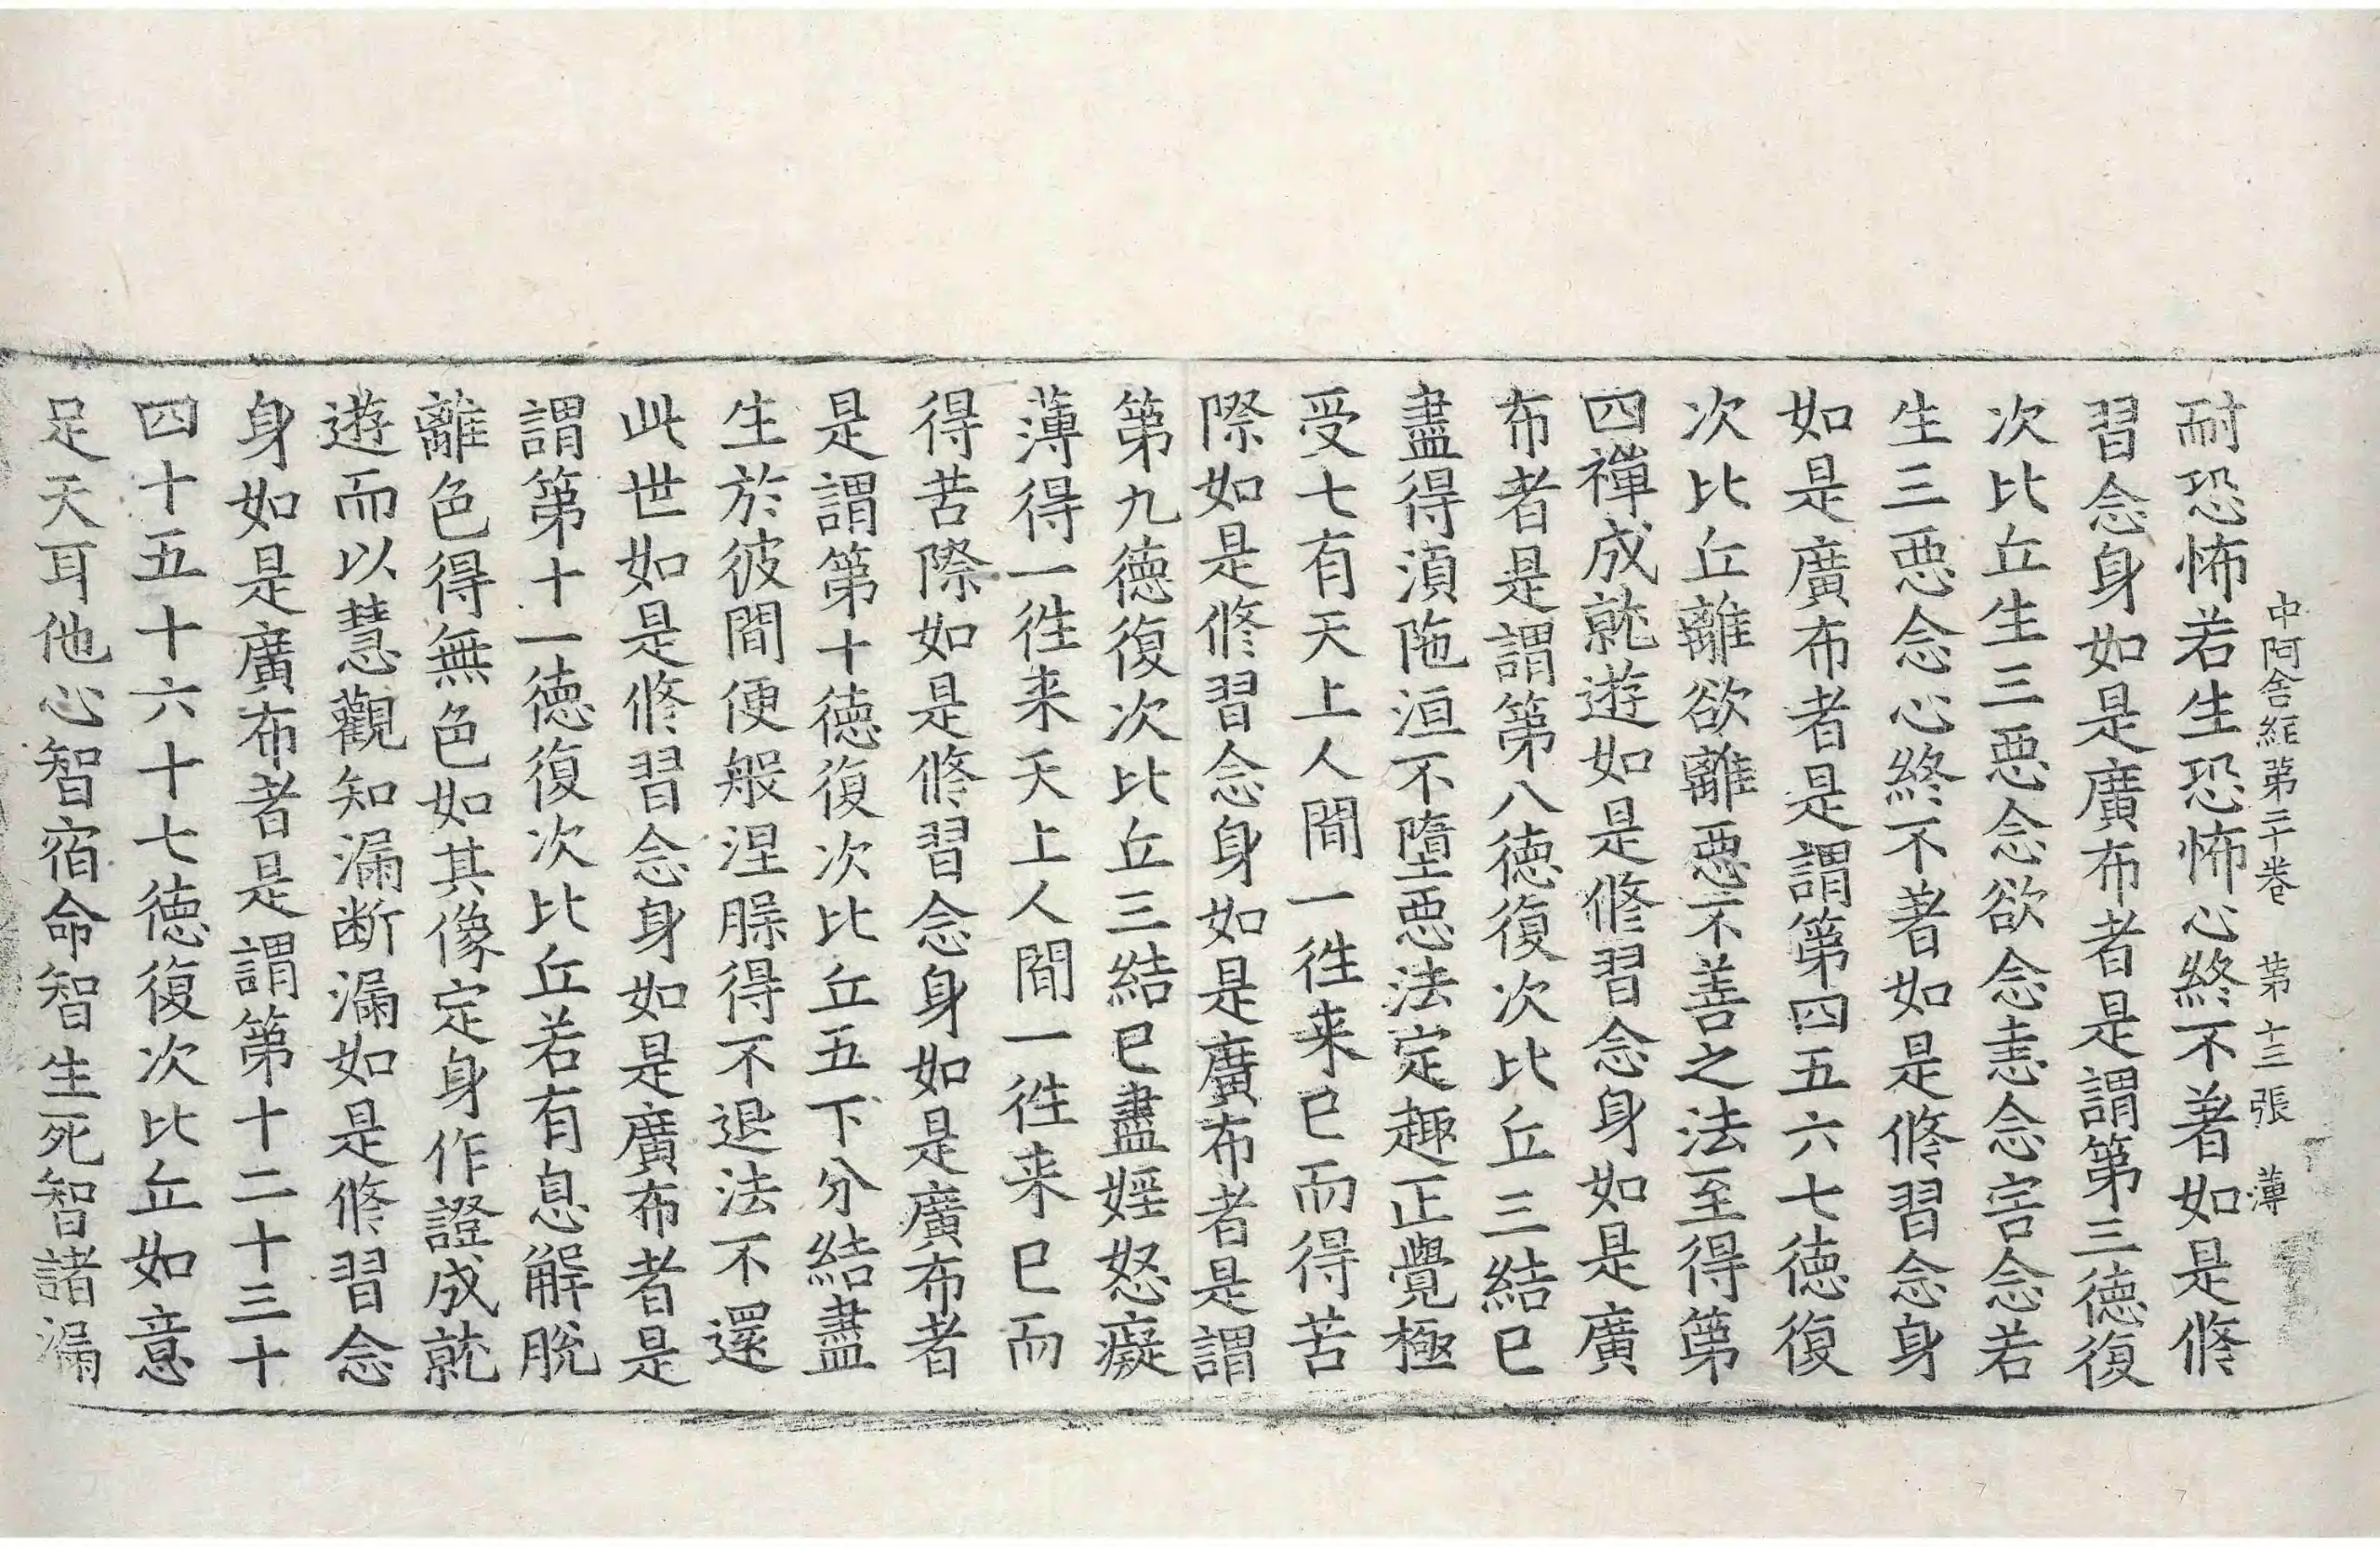 中阿含経第二十卷 第十三張 薄
耐恐怖若生恐怖心終不著如是修
習念身如是廣布者是謂第三德復
次比丘生三惡念欲念恚念害念若
生三惡念心終不著如是修習念身
如是廣布者是謂第四五六七德復
次比丘離欲離惡不善之法至得第
四禪成就遊如是修習念身如是廣
布者是謂第八德復次比丘三結已
盡得湏陁洹不墮惡法定趣正覺極
受七有天上人間一徃来已而得苦
際如是修習念身如是廣布者是謂
第九德復次比丘三結已盡婬怒癡
薄得一徃来天上人間一徃来已而
得苦際如是修習念身如是廣布者
是謂第十德復次比丘五下分結盡
生於彼間便般涅槃得不退法不還
此世如是修習念身如是廣布者是
謂第十一德復次比丘若有息解脫
離色得無色如其像定身作證成就
遊而以慧觀知漏断漏如是修習念
身如是廣布者是謂第十二十三十
四十五十六十七德復次比丘如意
足天耳他心智宿命智生死智諸漏